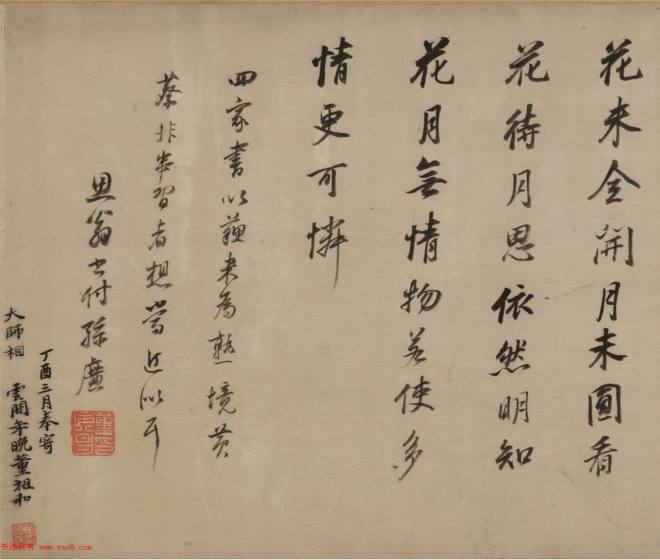 花未全開月未圓看
花待月思依然明知
花月無情物若使多
情更可憐
四家書以蘓米為甄境黃
蔡非本習者想當近似耳
思翁書付孫廉
丁酉三月奉寄
大師相 雲間年晚董祖和
书法欣赏 www.yac8.com